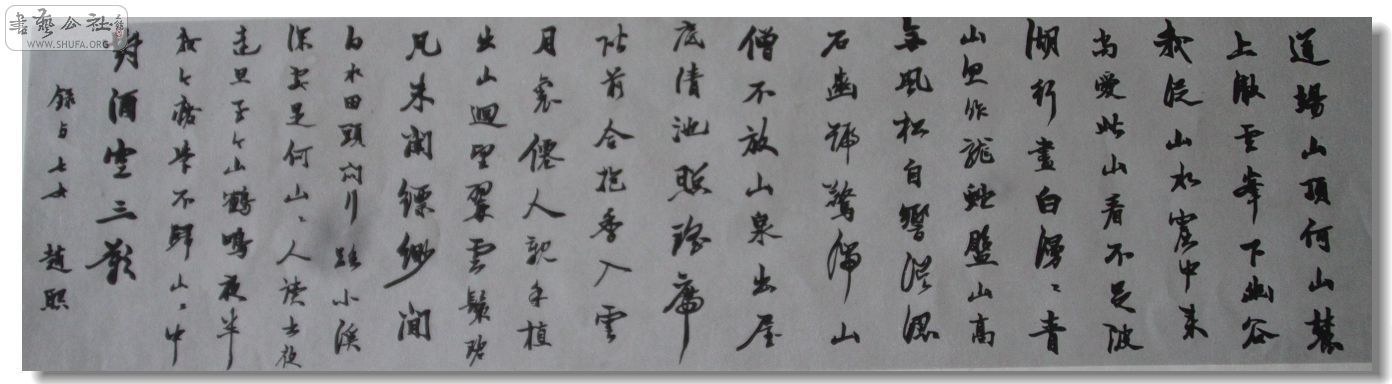 書藝公社
WWW.SHUFA.ORG
道場山頂何山麓
上徹雲峯下幽谷
我從山水窟中来
尚愛此山看不足波
湖行盡白漫〻青
山忽作龍蛇盤山高
無風松自響誤認
石齒號驚湍山
僧不放山泉出屋
底清池照瑤席
階前合抱香入雲
月裏僊人親手植
出山迴望翠雲鬟碧
瓦朱闌縹緲間
白水田頭問行路小溪
深處是何山〻人讀書夜
達旦至今山鶴鳴夜半
我今廢學不歸山〻中
對酒空三歎
錄与七女 趙照